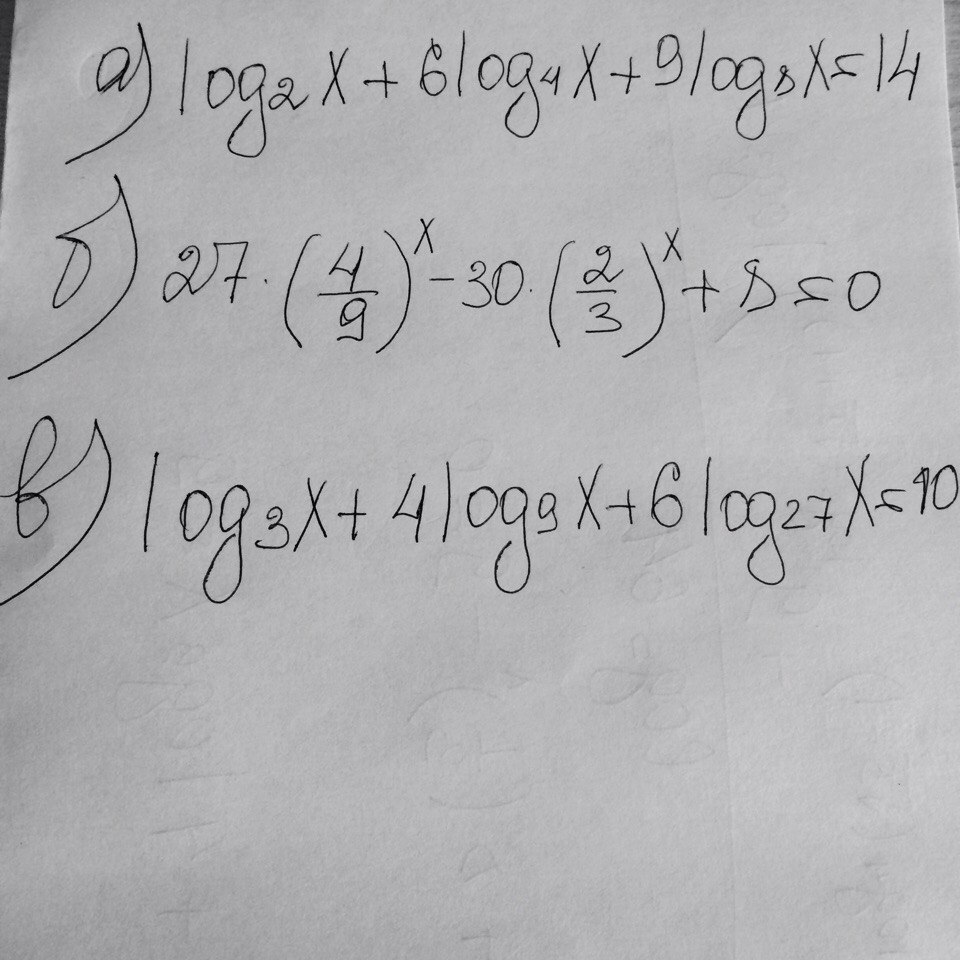 а) log₂x + 6log₄x + 9log₈x = 14
б) 27·(4/9)ˣ - 30·(2/3)ˣ + 8 = 0
в) log₃x + 4log₉x + 6log₂₇x = 10